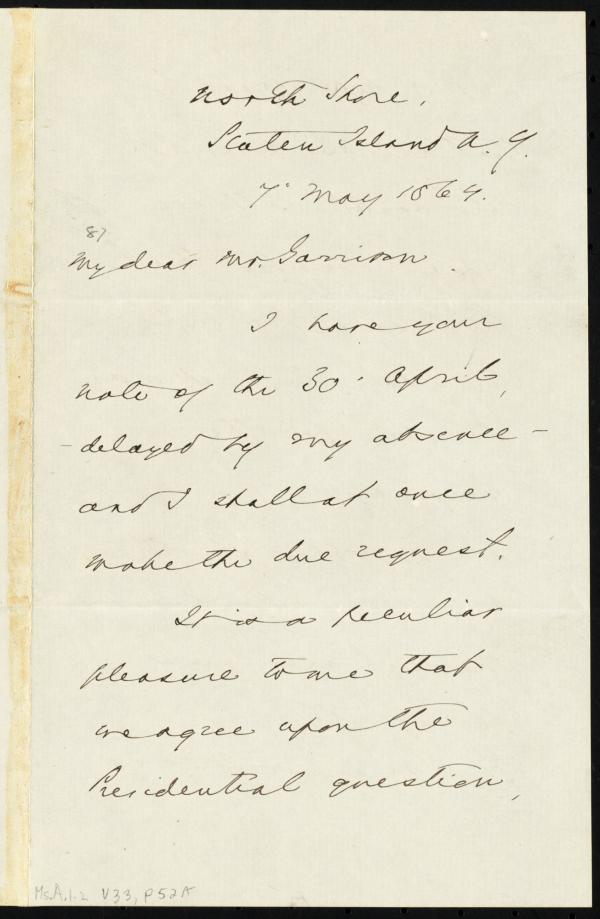 North Shore.
Staten Island N. Y.
7° May 1864.
87
My dear Mr. Garrison
I have your
note of the 30. April,
- delayed by my absence -
and I shall at once
make the due request.
It is a peculiar
pleasure to me that
we agree upon the
Presidential question,
Ms.A.1.2 V33, P52A